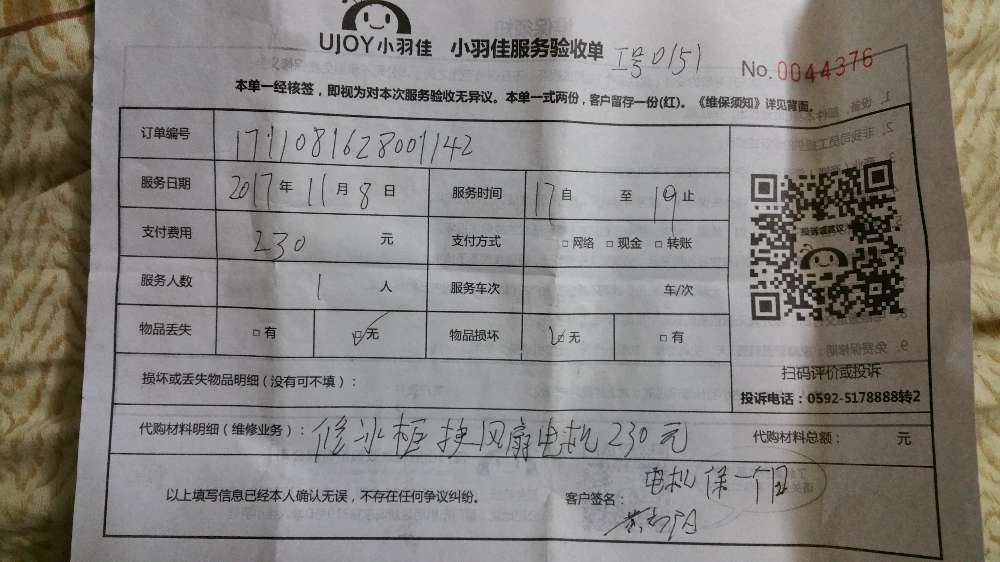 UJOY小羽佳 小羽佳服务验收单 工号0151
No.0044376
本单一经核签，即视为对本次服务验收无异议。本单一式两份，客户留存一份(红)。《维保须知》详见背面。
订单编号 1711081628001142
服务日期 2017年11月8日 服务时间 17自 至19止
支付费用 230 元 支付方式 □网络 □现金 □转账
服务人数 1 人 服务车次 车/次
物品丢失 □有 ☑无 物品损坏 ☑无 □有
损坏或丢失物品明细（没有可不填）：
扫码评价或投诉
投诉电话：0592-5178888转2
代购材料明细（维修业务）：修冰柜换风扇电机230元 代购材料总额： 元
电机保一个月
以上填写信息已经本人确认无误，不存在任何争议纠纷。 客户签名：